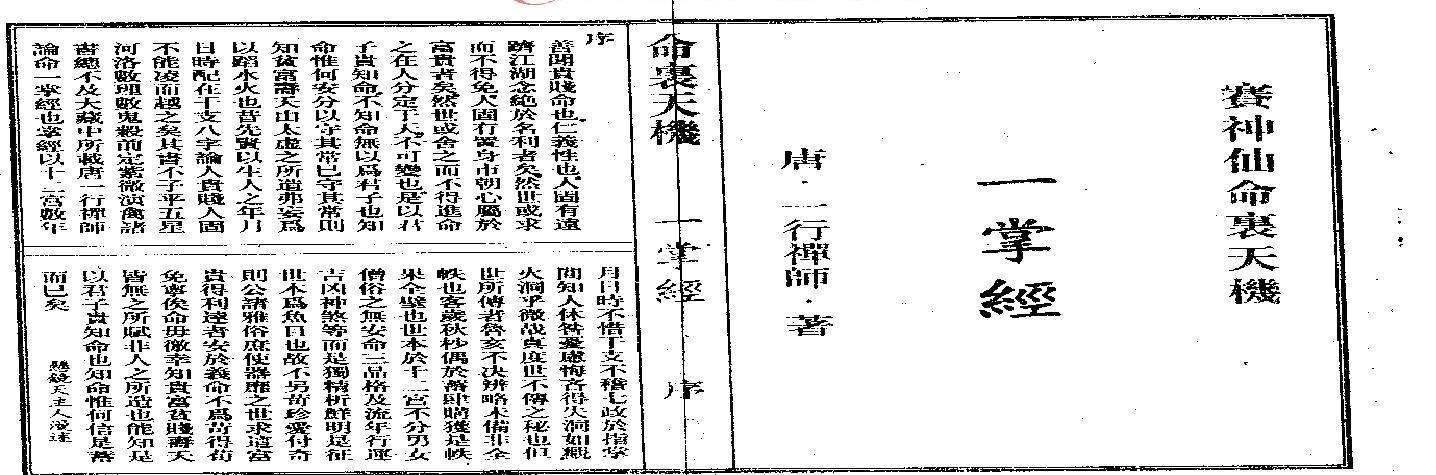 賽神仙命裏天機
一掌經
唐·一行禪師·著
命裏天機 一掌經 序
序
善聞貴賤命也仁義性也人固有遠
跡江湖念絕於名利者矣然世或求
而不得免人固有置身市朝心屬於
富貴者矣然世或舍之而不得進命
之在人分定于人不可變也是以君
子貴知命不知命無以爲君子也知
命惟何安分以守其常已守其常則
知貧富壽夭由太虛之所造弗妄爲
以蹈水火也昔先賢以生人之年月
日時配在干支八字論人貴賤人固
不能凌而越之矣其書不子平五星
河洛數理數鬼穀前定紫微演禽諸
書總不及大藏中所載唐一行禪師
論命一掌經也掌經以十二宮數年
月日時不惜干支不稽七政於指掌
間知人休咎憂慮悔吝得失洞如觀
火洞乎微哉真度世不傳之秘也但
世所傳者魯亥不決辨略未備非全
帙也客歲秋杪偶於舊肆購獲是帙
果全璧也世本於十二宮不分男女
僧俗之無安命三品格及流年行運
吉凶神煞等而是獨精析鮮明是征
世本爲魚目也故不另苛珍愛付奇
則公諸雅俗庶使器靡之世求這富
貴得利達者安於義命不爲苛得苟
免寧俟命毋徼幸知貴富貧賤壽夭
皆無之所賦非人之所造也能知是
以君子貴知命也知命惟何信是蓄
而已矣
天主人漫述